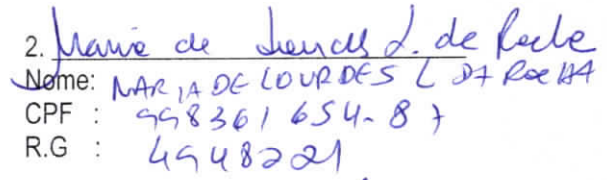 2. Maria de Lourdes L. da Rocha
Nome: MARIA DE LOURDES L DA ROCHA
CPF : 998361654-87
R.G : 4948221